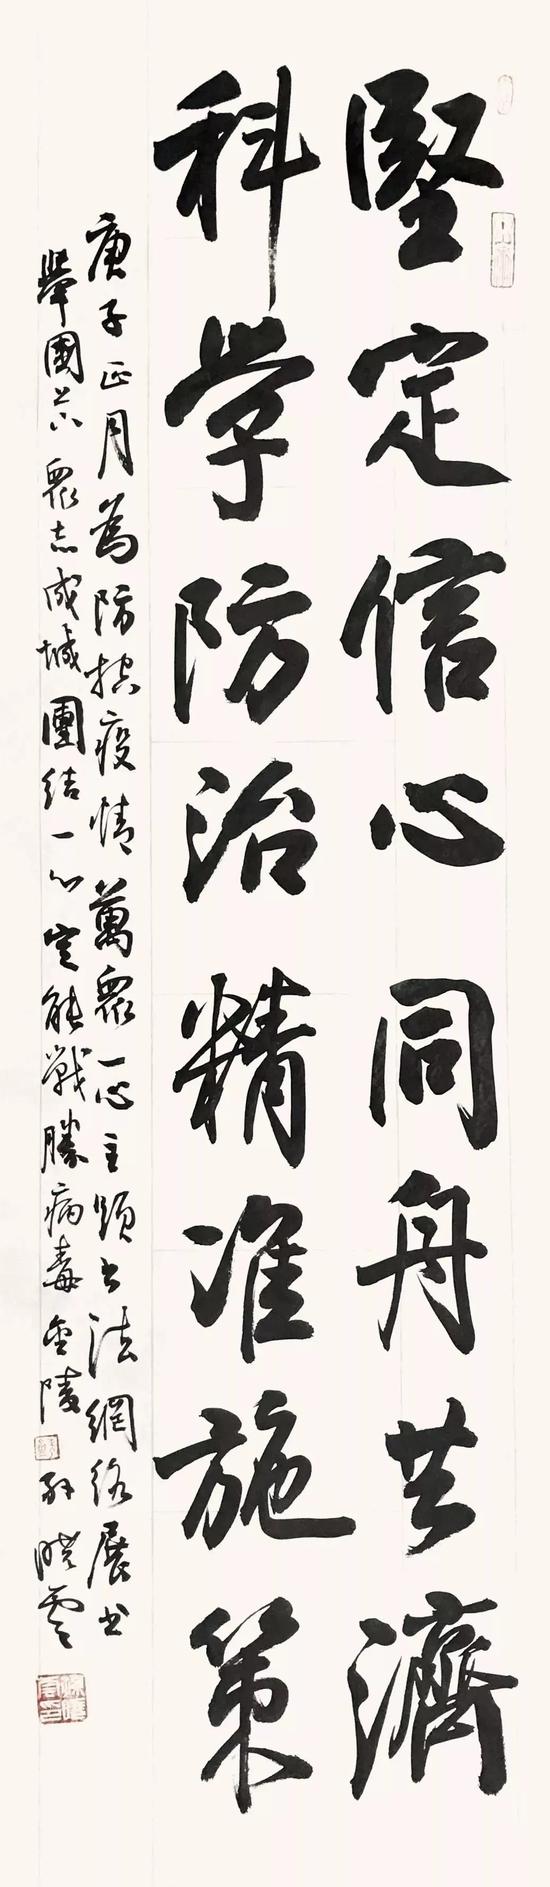 堅定信心同舟共濟
科學防治精准施策
庚子正月為防控疫情萬眾一心主題書法網絡展書
舉國上下眾志成城團結一心定能戰勝病毒金陵孫曉雲